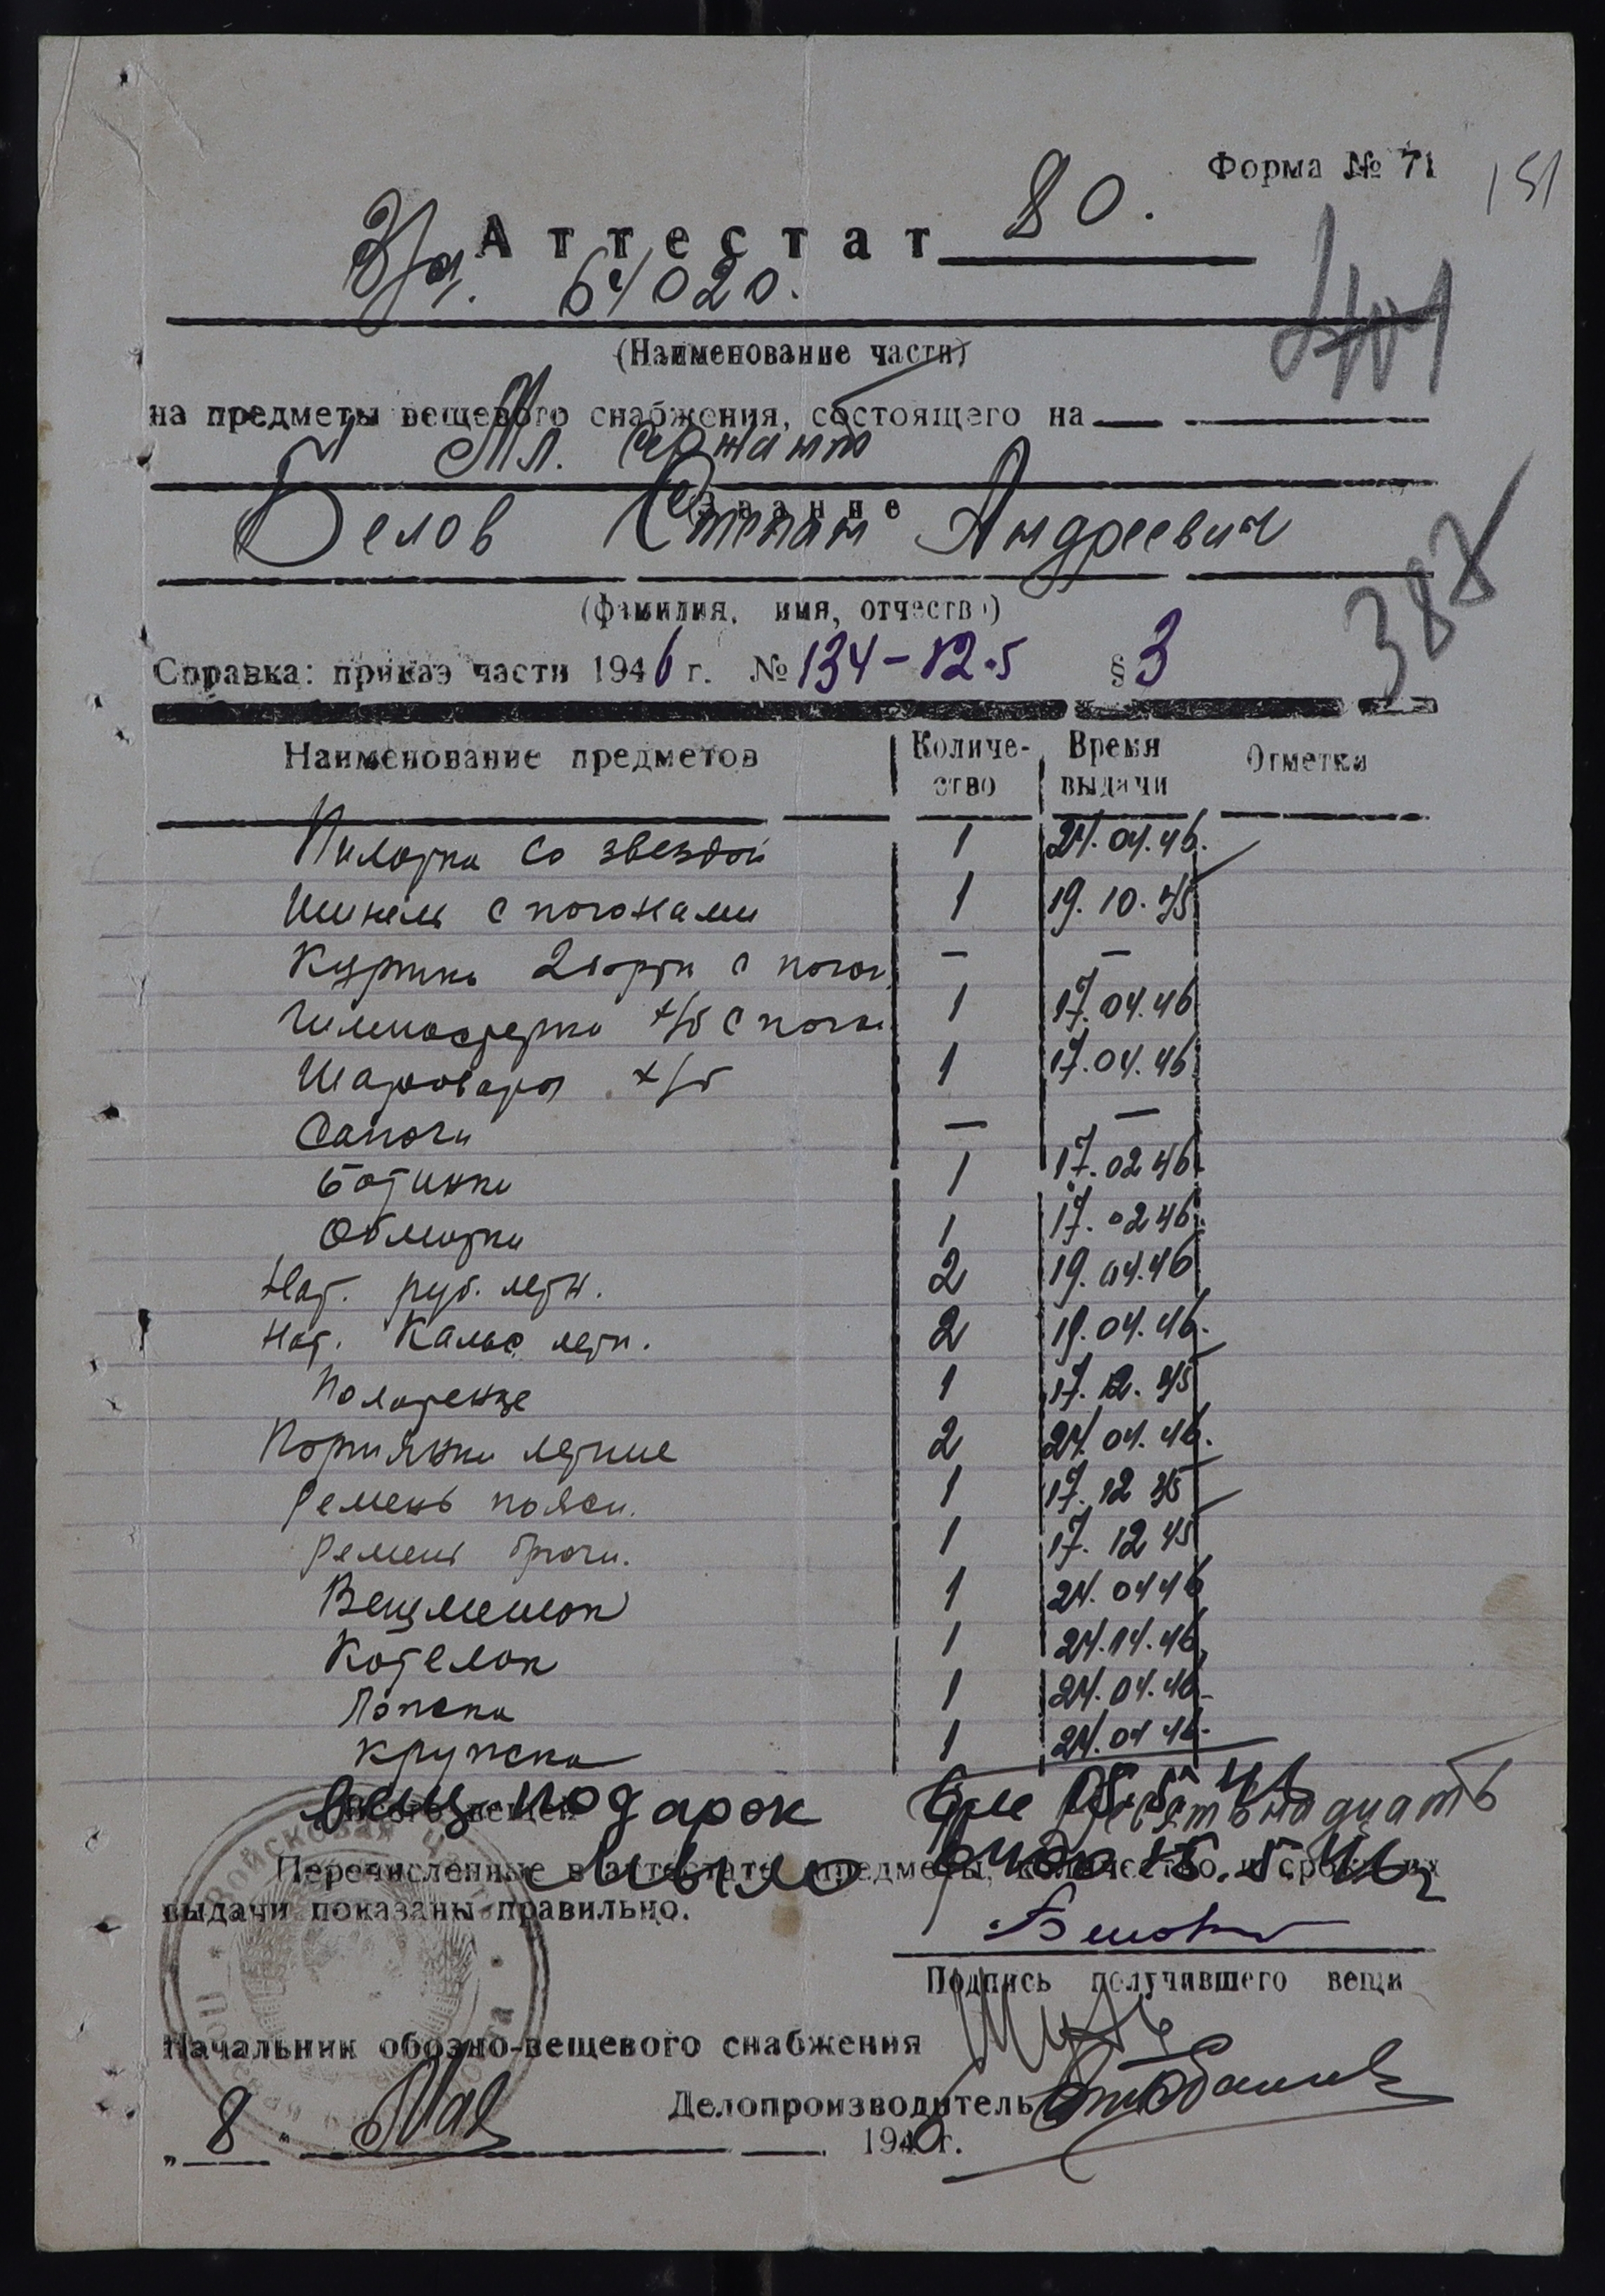 Форма № 71
151
Аттестат 80.
В/ч. 64020.
(Наименование части)
на предметы вещевого снабжения, состоящего на
Мл. сержант
(Звание
Белов Степан Андреевич
(фамилия, имя, отчество)
388
Справка: приказ части 1946 г. № 134-12.5 § 3
Наименование предметов Количество Время выдачи Отметки
Пилотка со звездой 1 24.04.46.
Шинель с погонами 1 19.10.45
Куртка 2 борт с погон — —
Гимнастерка х/б с погон 1 17.04.46
Шаровары х/б 1 17.04.46
Сапоги — —
Ботинки 1 17.02 46
Обмотки 1 17.02 46
Нат. руб. летн. 2 19.04.46
Нат. Кальс летн. 2 19.04.46.
Полотенце 1 17.12.45
Портянки летние 2 24.04.46.
Ремень поясн. 1 17.12 45
Ремень брючн. 1 17.12 45
Вещмешок 1 24.04 46
Котелок 1 24.04.46
Ложка 1 24.04.46
Кружка 1 24.04 46
Итого вещей
вещ-подарок
мыло
Перечисленные в аттестате предметы, количество и сроки их
выдачи показаны правильно.
Белов
Подпись получившего вещи
Начальник обозно-вещевого снабжения
Делопроизводитель
„8" Мая 1946 г.